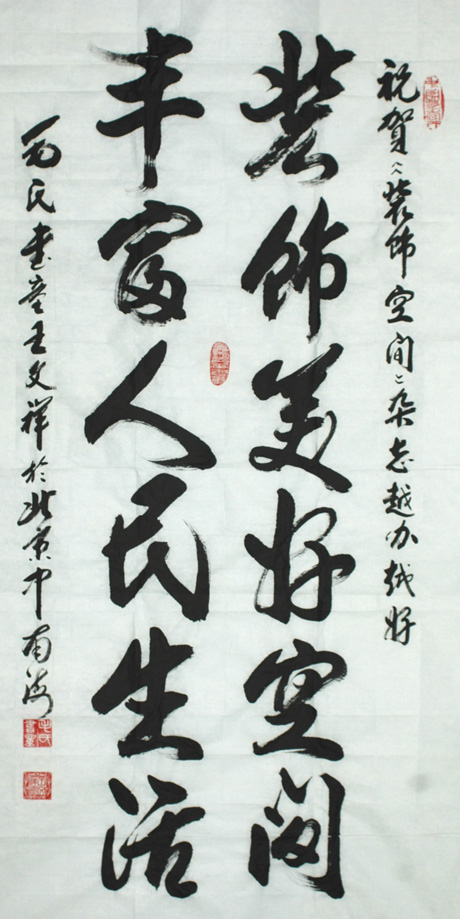 祝贺《装饰空间》杂志越办越好
装饰美好空间
丰富人民生活
为民书童王文祥於北京中南海